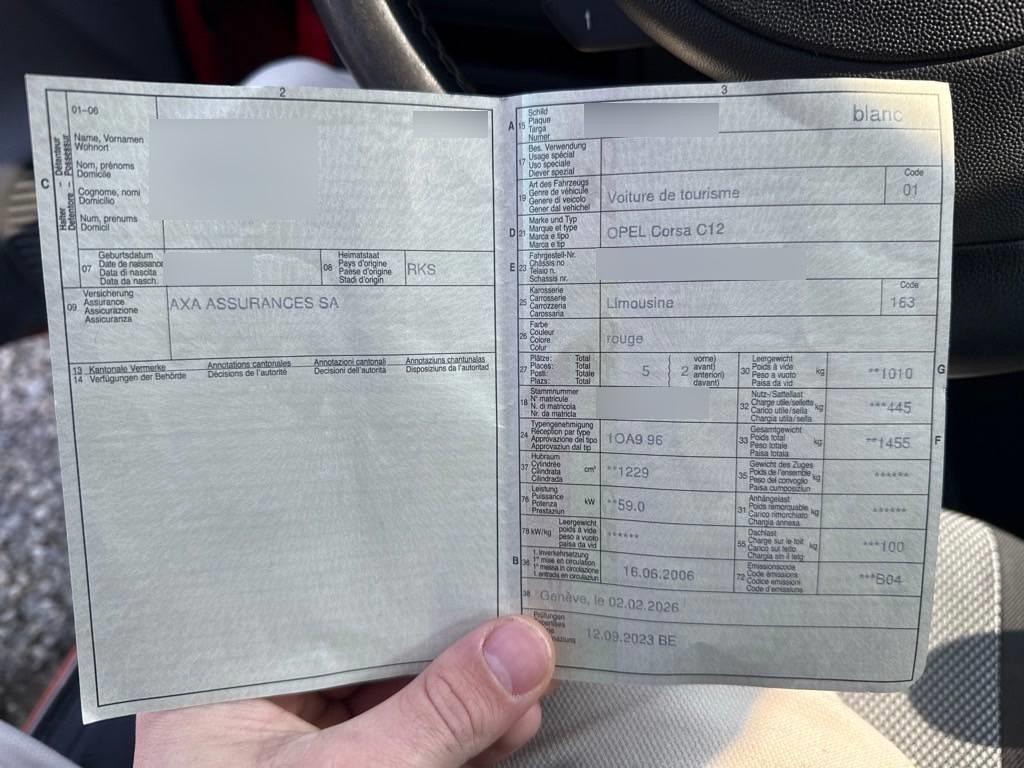 2
01-06
C
Halter – Détenteur
Detentore – Possessur
Name, Vornamen
Wohnort
Nom, prénoms
Domicile
Cognome, nomi
Domicilio
Num, prenums
Domicil
07
Geburtsdatum
Date de naissance
Data di nascita
Data da nasch.
08
Heimatstaat
Pays d'origine
Paese d'origine
Stadi d'origin
RKS
09
Versicherung
Assurance
Assicurazione
Assicuranza
AXA ASSURANCES SA
13 Kantonale Vermerke Annotations cantonales Annotazioni cantonali Annotaziuns chantunalas
14 Verfügungen der Behörde Décisions de l'autorité Decisioni dell'autorità Disposiziuns da l'autoritad
3
A 15
Schild
Plaque
Targa
Numer
blanc
17
Bes. Verwendung
Usage spécial
Uso speciale
Diever spezial
19
Art des Fahrzeugs
Genre de véhicule
Genere di veicolo
Gener dal vehichel
Voiture de tourisme
Code
01
D 21
Marke und Typ
Marque et type
Marca e tipo
Marca e tip
OPEL Corsa C12
E 23
Fahrgestell-Nr.
Châssis no
Telaio n.
Schassis nr.
25
Karosserie
Carrosserie
Carrozzeria
Carossaria
Limousine
Code
163
26
Farbe
Couleur
Colore
Colur
rouge
27
Plätze: Total
Places: Total
Posti: Totale
Plazs: Total
5
2
vorne)
avant)
anteriori)
davant)
30
Leergewicht
Poids à vide
Peso a vuoto
Paisa da vid
kg
**1010
G
18
Stammnummer
N° matricule
N. di matricola
Nr. da matricla
32
Nutz-/Sattellast
Charge utile/sellette
Carico utile/sella
Chargia utila/sella
kg
***445
24
Typengenehmigung
Réception par type
Approvazione del tipo
Approvaziun dal tip
1OA9 96
33
Gesamtgewicht
Poids total
Peso totale
Paisa totala
kg
**1455
F
37
Hubraum
Cylindrée
Cilindrata
Cilindrada
cm³
**1229
35
Gewicht des Zuges
Poids de l'ensemble
Peso del convoglio
Paisa cumposiziun
kg
******
76
Leistung
Puissance
Potenza
Prestaziun
kW
**59.0
31
Anhängelast
Poids remorquable
Carico rimorchiato
Chargia annexa
kg
******
78 kW/kg
Leergewicht
poids à vide
peso a vuoto
paisa da vid
******
55
Dachlast
Charge sur le toit
Carico sul tetto
Chargia sin il tetg
kg
***100
B 36
1. Inverkehrsetzung
1re mise en circulation
1a messa in circolazione
1. entrada en circulaziun
16.06.2006
72
Emissionscode
Code émissions
Codice emissioni
Code d'emissiuns
***B04
38
Genève, le 02.02.2026
Prüfungen
12.09.2023 BE